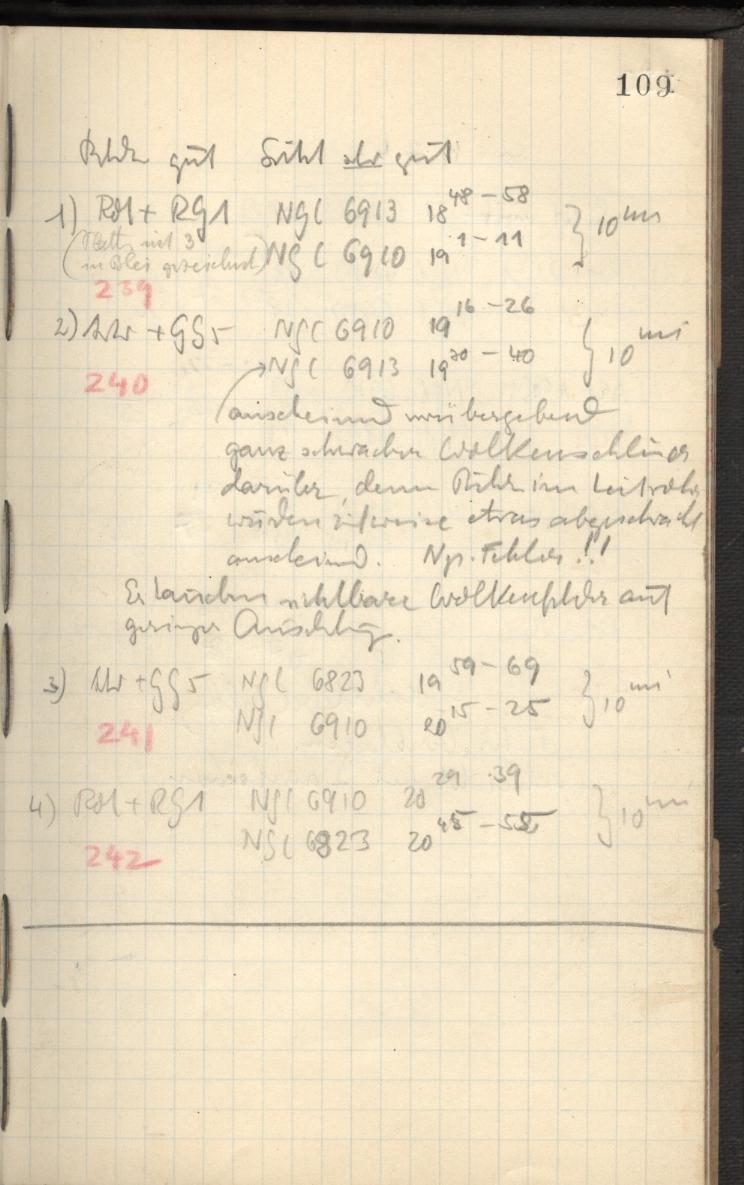 109
Bilder gut Sicht sehr gut
1) Rot + RG1 NGC 6913 18 48 – 58 } 10 min
(Platte mit 3 NGC 6910 19 1 – 11
in Blei gezeichnet)
239
2) + GG5 NGC 6910 19 16 – 26 } 10 min
240 NGC 6913 19 30 – 40
anscheinend vorübergehend
ganz schwacher Wolkenschleier
darüber, denn Bilder im Leitrohr
wurden zeitweise etwas abgeschwächt
anscheinend. Ngs. Fehler!!
Es tauchen sichtbare Wolkenfelder auf
geringer Ausdehng.
3) + GG5 NGC 6823 19 59 – 69 } 10 min
241 NGC 6910 20 15 – 25
4) Rot + RG1 NGC 6910 20 29 - 39 } 10 min
242 NGC 6823 20 45 – 55